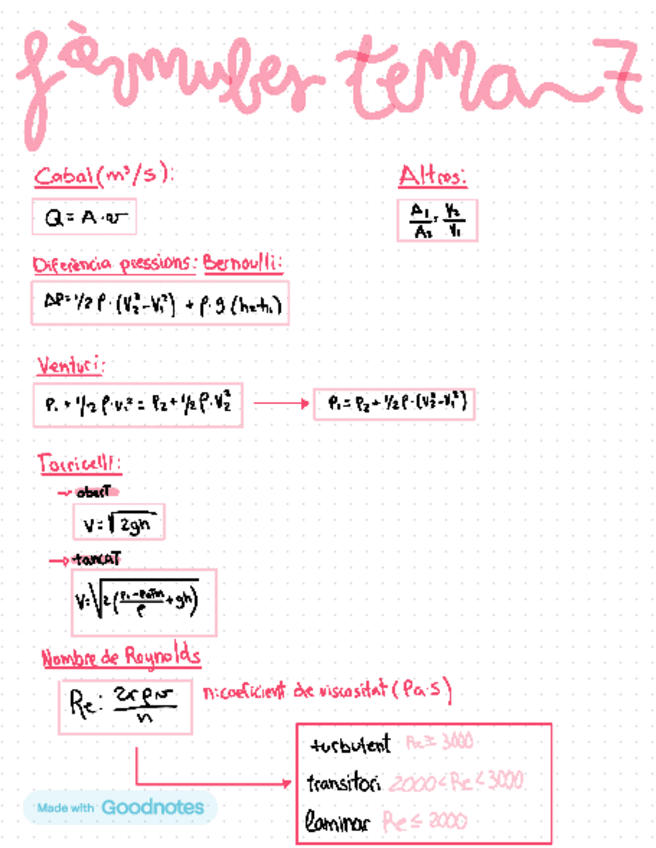 fòrmules tema 7
Cabal (m³/s):
Q = A·v
Altres:
A₁/A₂ = V₂/V₁
Diferència pressions: Bernoulli:
ΔP = 1/2 ρ · (V₂² - V₁²) + ρ · g (h₂+h₁)
Venturi:
P₁ + 1/2 ρ · v₁² = P₂ + 1/2 ρ · V₂² → P₁ = P₂ + 1/2 ρ · (V₂² - V₁²)
Torricelli:
→ obert
V = √2gh
→ tancat
V = √2(P₁ - Patm/ρ + gh)
Nombre de Reynolds
Re: 2rρv/n
n: coeficient de viscositat (Pa·s)
turbulent Re ≥ 3000
transitori 2000 < Re < 3000
laminar Re ≤ 2000
Made with Goodnotes